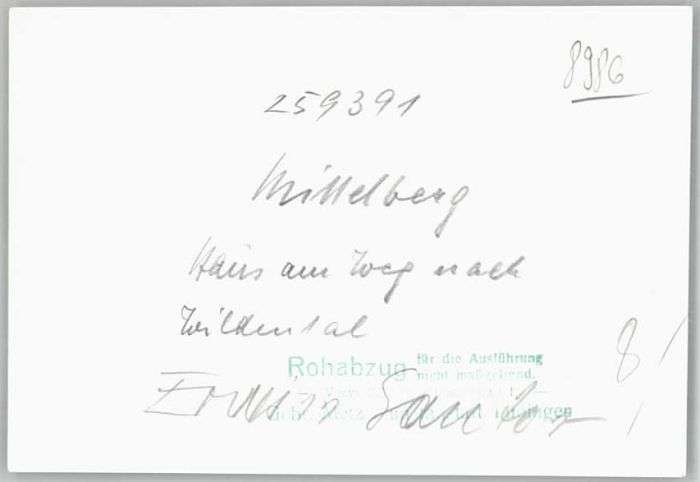 8986
259391
Mittelberg
Haus am Weg nach
Wildental
Rohabzug für die Ausführung
nicht maßgebend.
Erwin Santor
Gebr. Metz Tübingen
8!